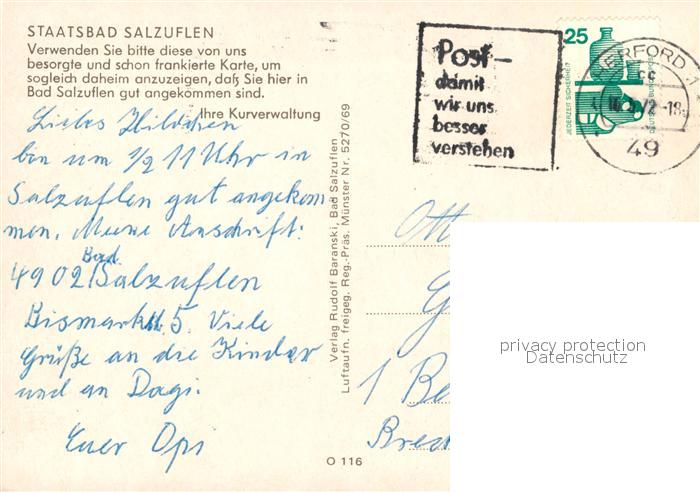 STAATSBAD SALZUFLEN
Verwenden Sie bitte diese von uns
besorgte und schon frankierte Karte, um
sogleich daheim anzuzeigen, daß Sie hier in
Bad Salzuflen gut angekommen sind.
Ihre Kurverwaltung
Liebes Hildchen
bin um 1/2 11 Uhr in
Salzuflen gut angekom
men. Meine Anschrift:
Bad
4902 Salzuflen
Bismarckstr. 5. Viele
Grüße an die Kinder
und an Dagi.
Euer Opi
Verlag Rudolf Baranski, Bad Salzuflen
Luftaufn. freigeg. Reg.-Präs. Münster Nr. 5270/69
O 116
Post-
damit
wir uns
besser
verstehen
25
JEDERZEIT SICHERHEIT
DEUTSCHE BUNDESPOST
HERFORD
cc
72-18
49
Ott
G
1 Be
privacy protection
Datenschutz